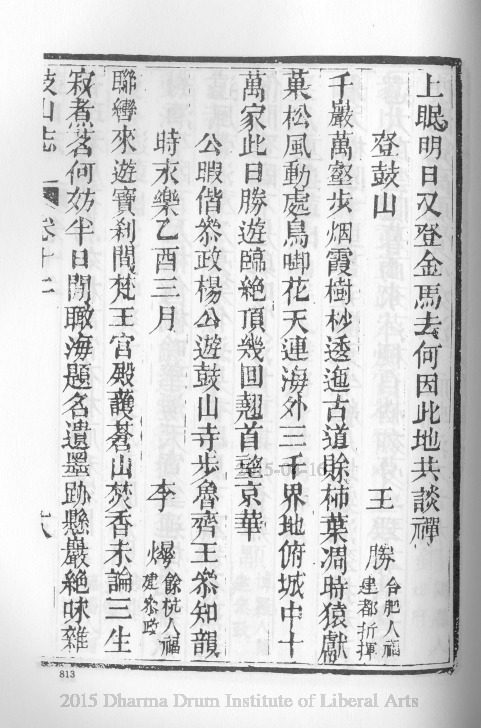 上眠明日又登金馬去何因此地共談禪
登鼓山 王 勝 合肥人福建都指揮
千巖萬壑步烟霞樹杪透迤古道賒柿葉凋時猿獻
菓松風動處鳥啣花天連海外三千界地俯城中十
萬家此日勝遊臨絶頂幾回翹首望京華
公暇偕叅政楊公遊鼓山寺步魯齊王叅知韻
時永樂乙酉三月 李 燁 餘杭人福建叅政
聮轡來遊寶刹間梵王宮殿護蒼山焚香未論三生
寂煮茗何妨半日閒瞰海題名遺墨跡懸巖絶咏雜
鼓山志 卷十二 十八
813
2015 Dharma Drum Institute of Liberal Arts